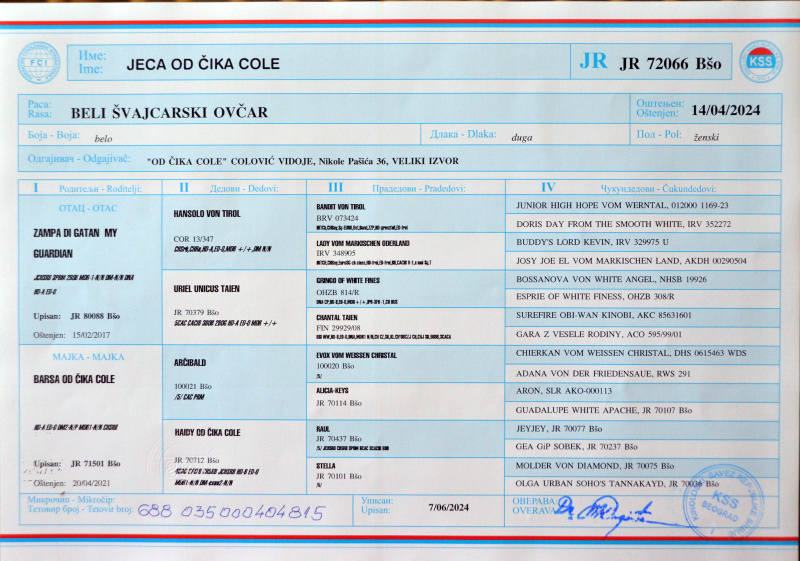 FCI
Име:
Ime:
JECA OD ČIKA COLE
JR JR 72066 Bšo
KSS
Раса:
Rasa:
BELI ŠVAJCARSKI OVČAR
Оштењен:
Oštenjen:
14/04/2024
Боја - Boja: belo
Длака - Dlaka: duga
Пол - Pol: ženski
Одгајивач - Odgajivač: "OD ČIKA COLE" COLOVIĆ VIDOJE, Nikole Pašića 36, VELIKI IZVOR
I Родитељи - Roditelji:
II Дедови - Dedovi:
III Прадедови - Pradedovi:
IV Чукундедови - Čukundedovi:
ОТАЦ - OTAC
ZAMPA DI GATAN MY
GUARDIAN
HD-A ED-0
Upisan: JR 80088 Bšo
Oštenjen: 15/02/2017
МАЈКА - MAJKA
BARSA OD ČIKA COLE
Upisan: JR 71501 Bšo
Oštenjen: 20/04/2021
HANSOLO VON TIROL
COR 13/347
URIEL UNICUS TAIEN
JR 70379 Bšo
ARČIBALD
100021 Bšo
/5/ CAC PRM
HAIDY OD ČIKA COLE
JR 70712 Bšo
BANDIT VON TIROL
BRV 073424
LADY VOM MARKISCHEN ODERLAND
IRV 348905
GRINGO OF WHITE FINES
OHZB 814/R
CHANTAL TAIEN
FIN 29929/08
EVOX VOM WEISSEN CHRISTAL
100020 Bšo
/5/
ALICIA-KEYS
JR 70114 Bšo
RAUL
JR 70437 Bšo
STELLA
JR 70101 Bšo
JUNIOR HIGH HOPE VOM WERNTAL, 012000 1169-23
DORIS DAY FROM THE SMOOTH WHITE, IRV 352272
BUDDY'S LORD KEVIN, IRV 329975 U
JOSY JOE EL VOM MARKISCHEN LAND, AKDH 00290504
BOSSANOVA VON WHITE ANGEL, NHSB 19926
ESPRIE OF WHITE FINESS, OHZB 308/R
SUREFIRE OBI-WAN KINOBI, AKC 85631601
GARA Z VESELE RODINY, ACO 595/99/01
CHIERKAN VOM WEISSEN CHRISTAL, DHS 0615463 WDS
ADANA VON DER FRIEDENSAUE, RWS 291
ARON, SLR AKO-000113
GUADALUPE WHITE APACHE, JR 70107 Bšo
JEYJEY, JR 70077 Bšo
GEA GiP SOBEK, JR 70237 Bšo
MOLDER VON DIAMOND, JR 70075 Bšo
OLGA URBAN SOHO'S TANNAKAYD, JR 70036 Bšo
Микрочип - Mikročip:
Тетовир број - Tetovir broj: 688 035000404815
Уписан:
Upisan:
7/06/2024
ОВЕРАВА:
OVERAVA:
KSS
BEOGRAD